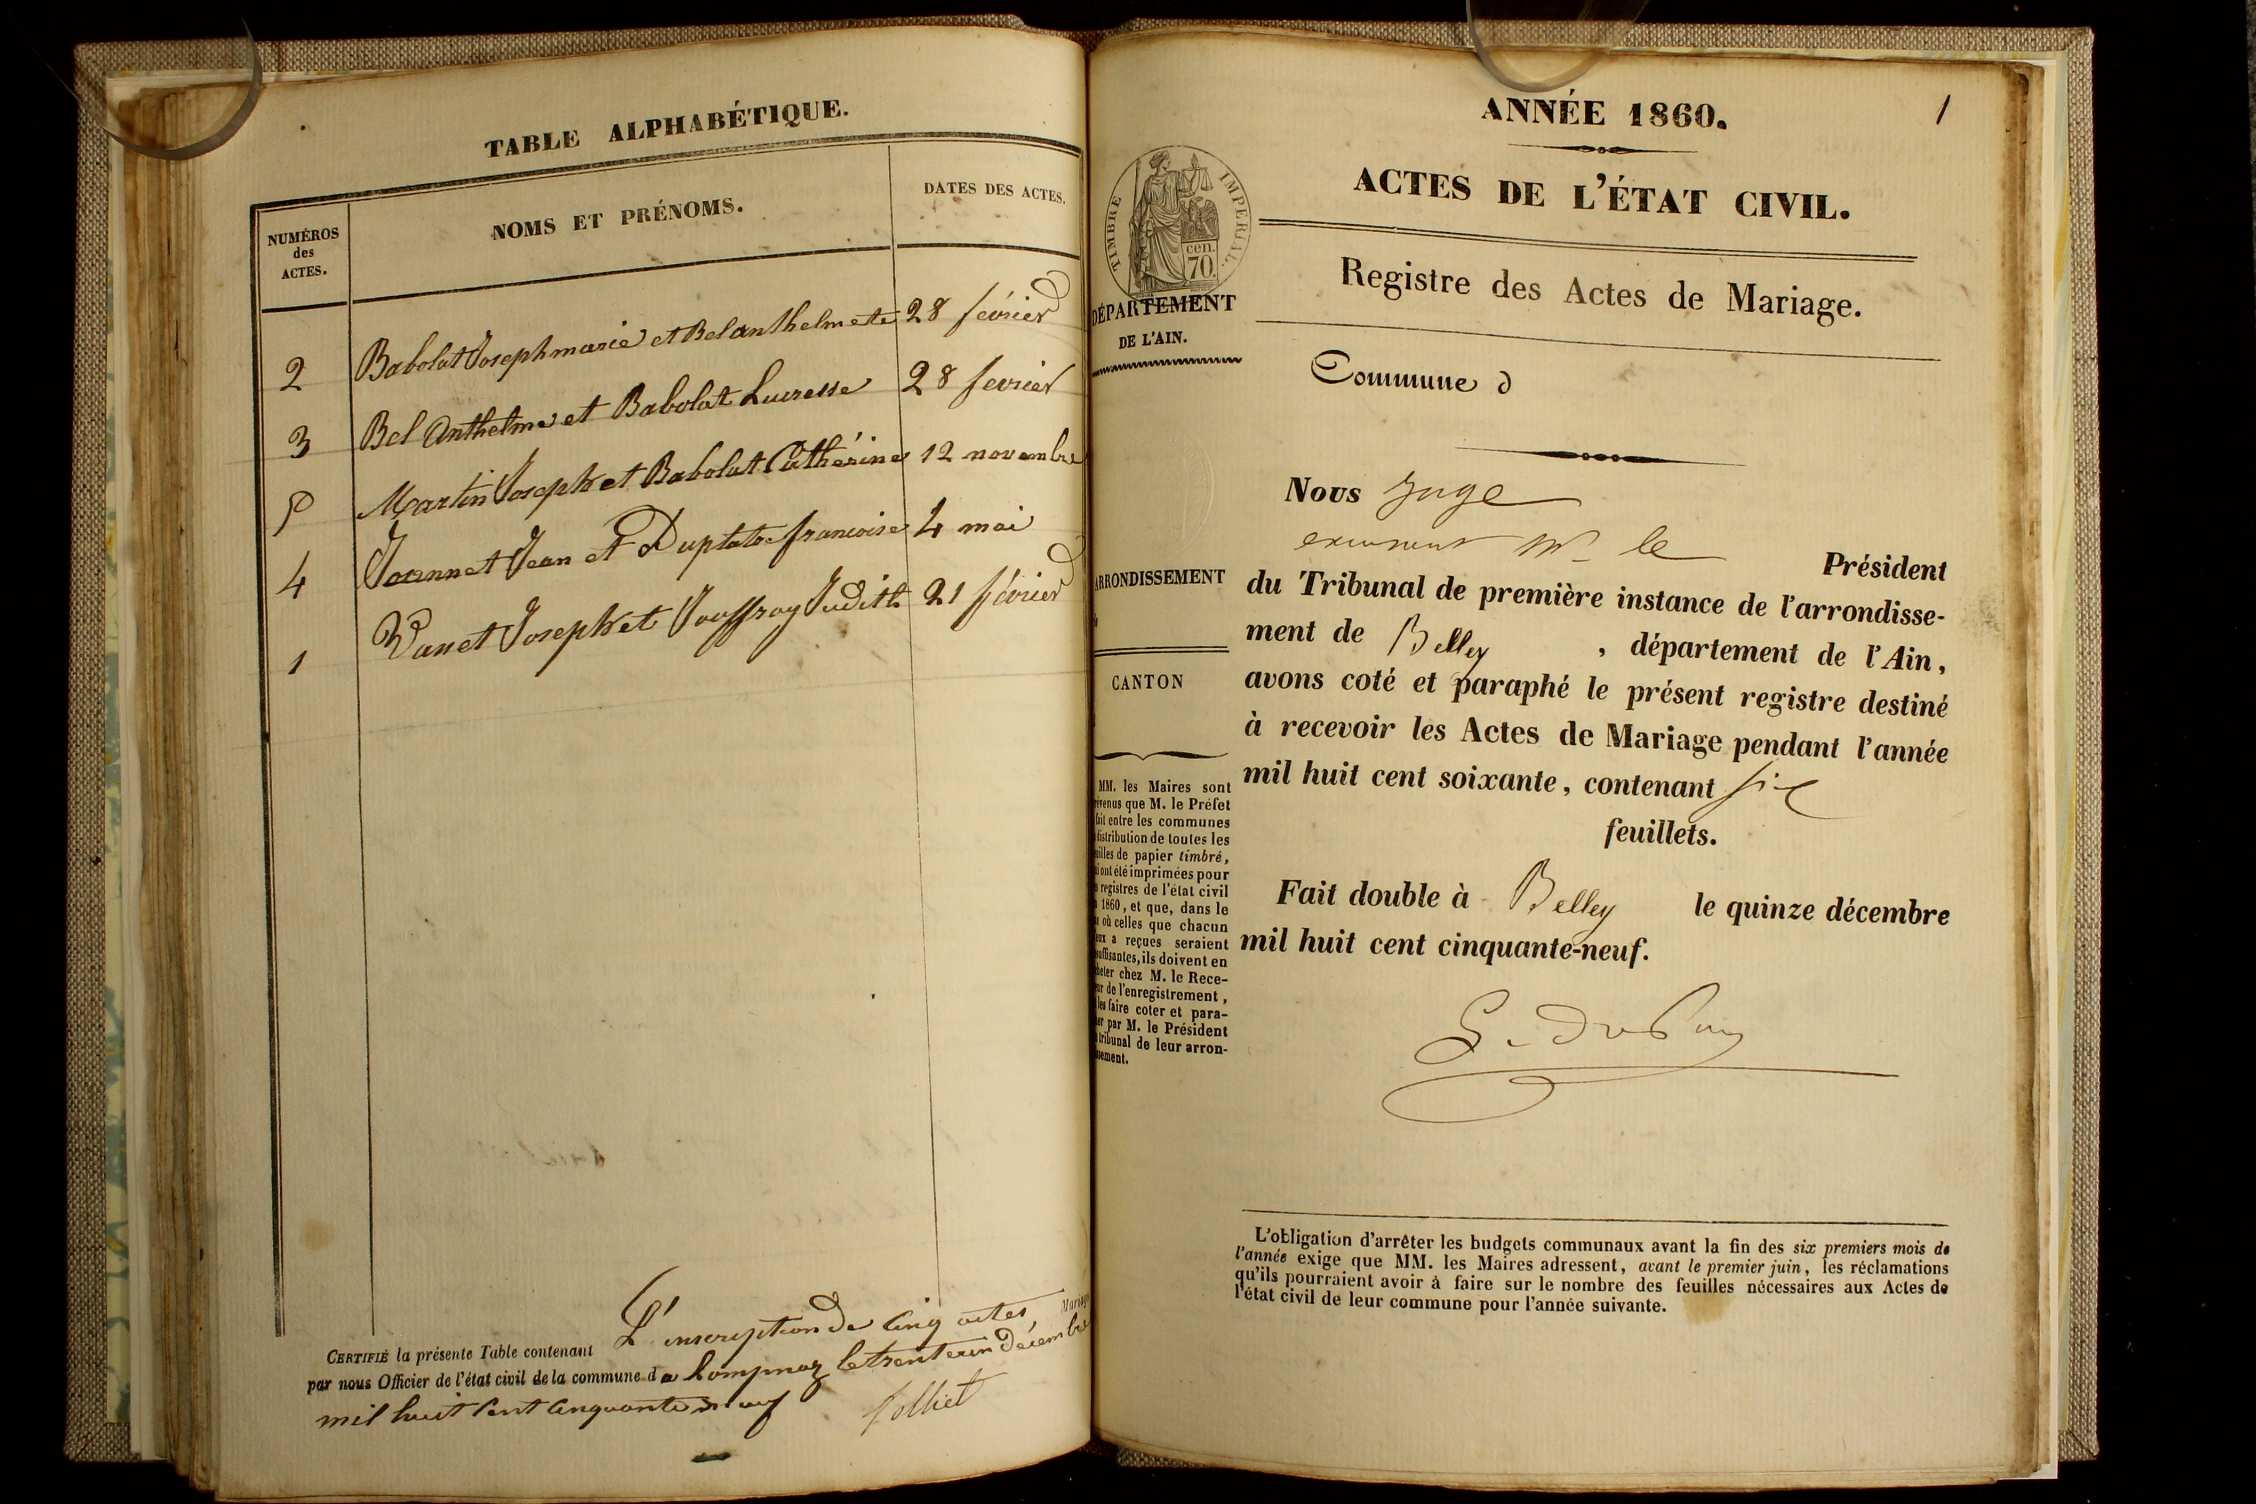 TABLE ALPHABÉTIQUE.
NUMÉROS
des
ACTES.
NOMS ET PRÉNOMS.
DATES DES ACTES.
2 Babolat Joseph marie et Bel anthelmete 28 février
3 Bel Anthelme et Babolat Lucresse 28 fevrier
5 Martin Joseph et Babolat Cathérine 12 novembre
4 Joannet Jean et Duplatre francoise 4 mai
1 Vanet Joseph et Jouffroy Judith 21 février
CERTIFIÉ la présente Table contenant L'inscription de Cinq actes
par nous Officier de l'état civil de la commune d e Lompnaz le trente un Décembre
mil huit Cent Cinquante neuf
folliet
1
ANNÉE 1860.
ACTES DE L'ÉTAT CIVIL.
Registre des Actes de Mariage.
TIMBRE IMPÉRIAL.
cen.
70.
DÉPARTEMENT
DE L'AIN.
Commune d
ARRONDISSEMENT
CANTON
MM. les Maires sont
que M. le Préfet
fait entre les communes
distribution de toutes les
de papier timbré,
ont été imprimées pour
registres de l'état civil
1860, et que, dans le
où celles que chacun
a reçues seraient
ils doivent en
chez M. le Rece-
de l'enregistrement,
les faire coter et para-
par M. le Président
tribunal de leur arron-
Nous Juge
M. le Président
du Tribunal de première instance de l'arrondisse-
ment de Belley, département de l'Ain,
avons coté et paraphé le présent registre destiné
à recevoir les Actes de Mariage pendant l'année
mil huit cent soixante, contenant six
feuillets.
Fait double à Belley le quinze décembre
mil huit cent cinquante-neuf.
L'obligation d'arrêter les budgets communaux avant la fin des six premiers mois de
l'année exige que MM. les Maires adressent, avant le premier juin, les réclamations
qu'ils pourraient avoir à faire sur le nombre des feuilles nécessaires aux Actes de
l'état civil de leur commune pour l'année suivante.